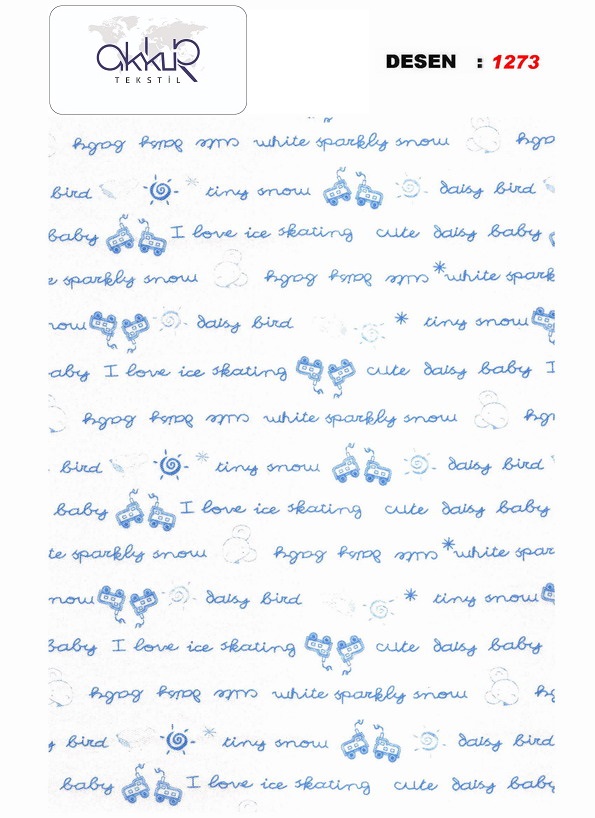 akkur
TEKSTİL
DESEN : 1273
cute daisy baby white sparkly snow
bird tiny snow daisy bird
baby I love ice skating cute daisy baby
sparkly snow cute daisy baby white spark
now daisy bird tiny snow
aby I love ice skating cute daisy baby I
cute daisy baby white sparkly snow
bird tiny snow daisy bird
baby I love ice skating cute daisy baby
te sparkly snow cute daisy baby white spar
now daisy bird tiny snow
baby I love ice skating cute daisy baby
cute daisy baby white sparkly snow
y bird tiny snow daisy bird
baby I love ice skating cute daisy baby